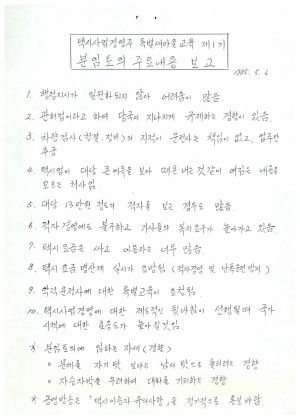 택시사업경영주 특별새마을교육 제1기
분임토의 주요내용 보고
1985. 5. 6
1. 행정지시가 일원화되지 않아 어려움이 많음
2. 관허업이라고 하여 당국이 지나치게 규제하는 경향이 있음
3. 차량검사(청결, 정비)의 지적이 운전사는 책임이 없고, 업주만
추궁
4. 택시업이 대당 큰 이득을 보아 떼돈 버는것 같이 여김은 내용을
모르는 처사임.
5. 대당 13만원 정도의 적자을 보는 경우도 많음.
6. 적자경영에도 불구하고 기사들의 복지요구가 늘어가고 있음
7. 택시 요금은 싸고 이용자는 너무 많음.
8. 택시 요금 병산제 실시가 요망됨 (적자경영 및 난폭운전 방지)
9. 악덕운전사에 대한 특별교육이 요청됨.
10. 택시사업경영에 대한 제도적인 뒷받침이 선행될때 국가
시책에 대한 호응도가 높아질것임.
※ 분임토의에 임하는 자세 (경향)
○ 문제를 자기탓 보다는 남의 탓으로 돌리려는 경향
○ 자승자박을 우려하여 대화를 기피하는 경향
※ 공영방송은 "택시이용자 유의사항"을 정기적으로 홍보바람